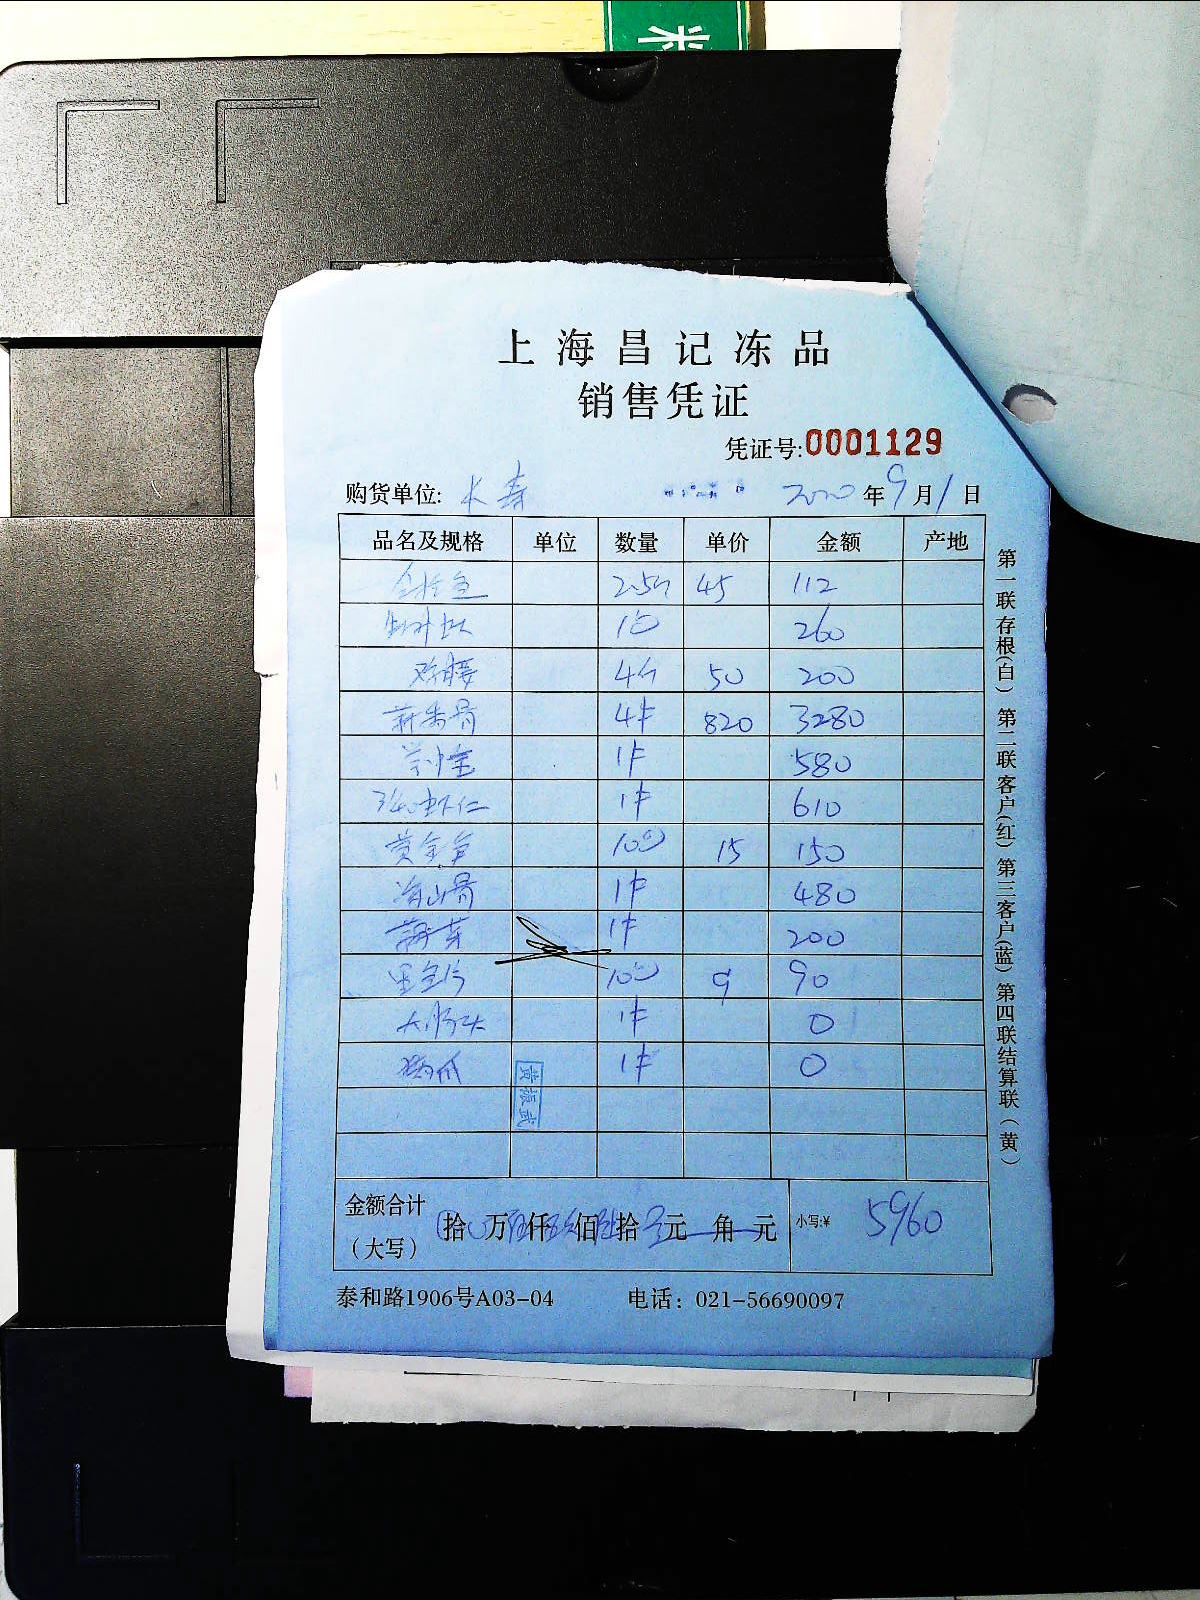 上海昌记冻品
销售凭证
凭证号:0001129
购货单位: 长寿 2020年9月1日
品名及规格 单位 数量 单价 金额 产地
2.5斤 45 112
1包 260
鸡腰 4斤 50 200
4件 820 3280
1件 580
虾仁 1件 610
黄金 10包 15 150
1件 480
1件 200
10包 9 90
大肠头 1件 0
1件 0
黄振武
金额合计
(大写) 拾 万 仟 佰 拾 元 角 元 小写:¥ 5960
泰和路1906号A03-04 电话: 021-56690097
第一联存根(白) 第二联客户(红) 第三客户(蓝) 第四联结算联(黄)